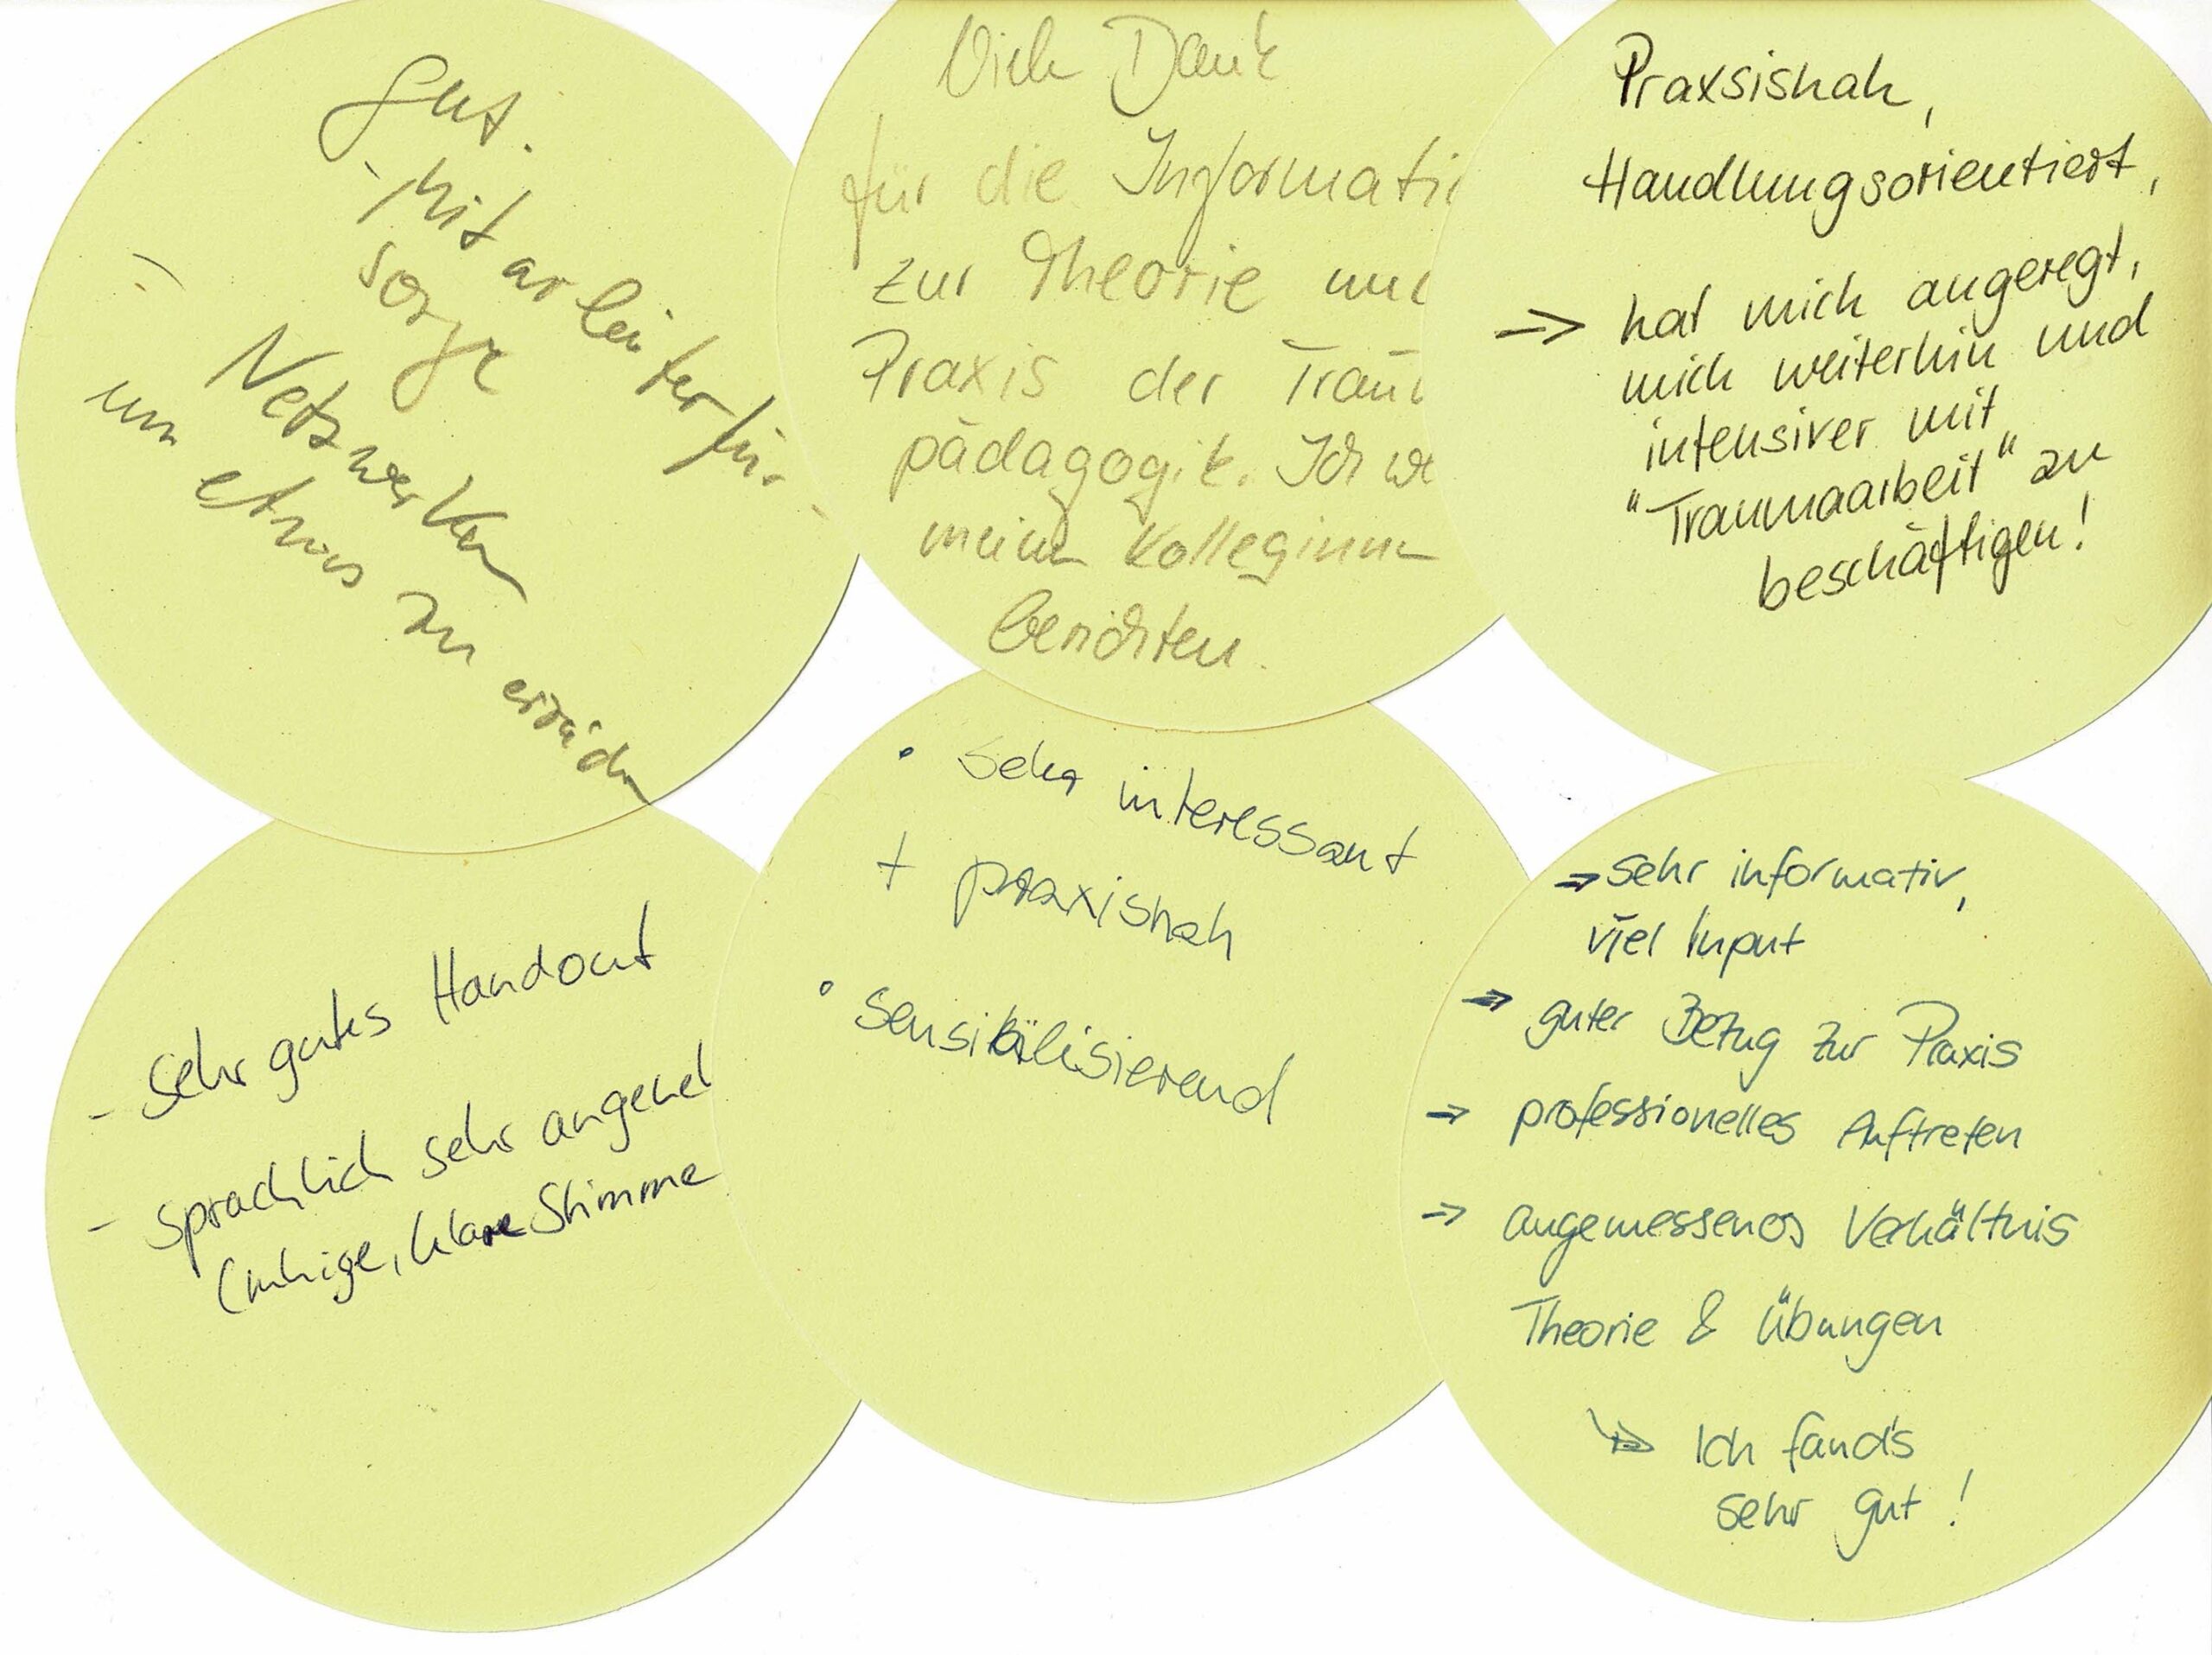 Gut:
- Mitarbeiterfür-
sorge
- Netzwerken
um etwas zu erreichen
Viele Dank
für die Informati
zur Theorie und
Praxis der Traum
pädagogik. Ich we
meinen Kolleginnen
berichten.
Praxsisnah,
Handlungsorientiert,
=> hat mich angeregt,
mich weiterhin und
intensiver mit
"Traumaarbeit" zu
beschäftigen!
- Sehr gutes Handout
- Sprachlich sehr angeneh
(ruhige, klare Stimme
• Sehr interessant
+ praxisnah
• Sensibilisierend
⇒ sehr informativ,
viel Input
⇒ guter Bezug zur Praxis
⇒ professionelles Auftreten
⇒ angemessenes Verhältnis
Theorie & Übungen
↳ Ich fand's
sehr gut!